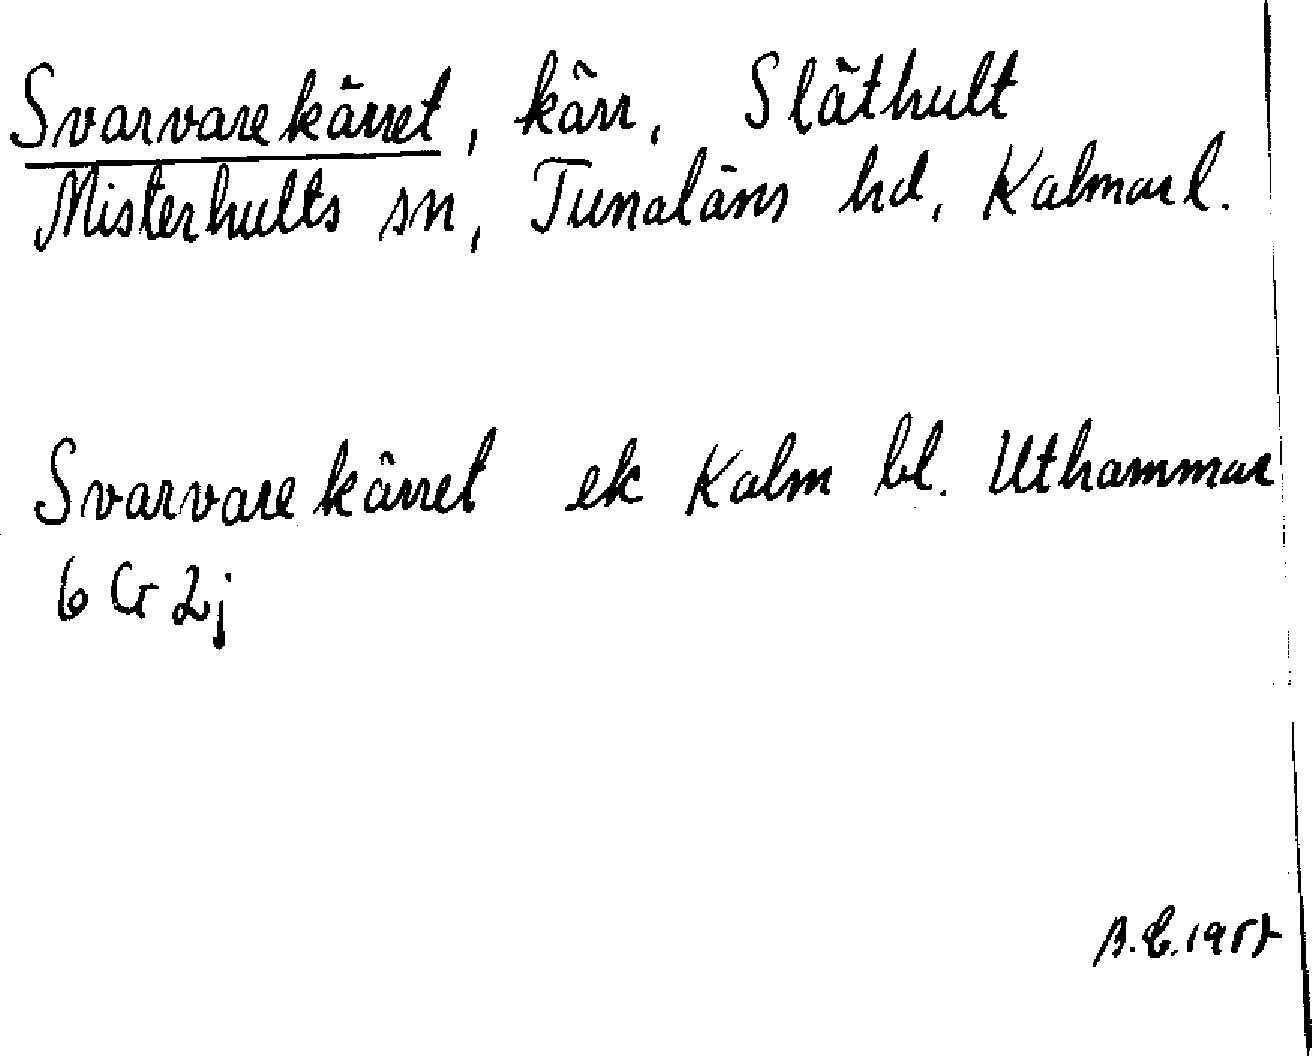 Svarvarekärret, kärr, Släthult
Misterhults sn, Tunaläns hd, Kalmar l.
Svarvarekärret ek Kalm bl. Uthammar
6 Gr 2j
B.E. 1957